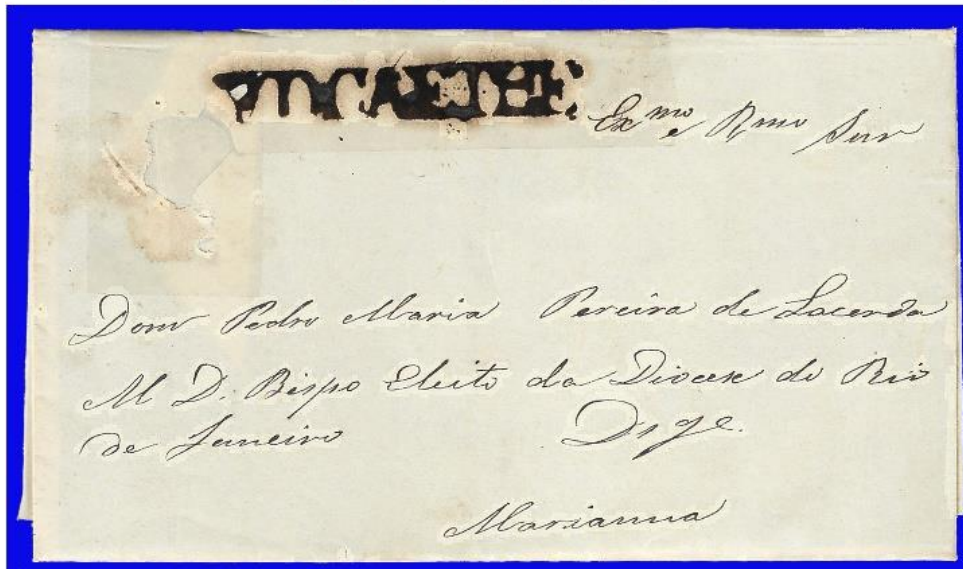 CAETHE
Exmo e Rmo Snr
Dom Pedro Maria Pereira de Lacerda
M D. Bispo Eleito da Diocese do Rio
de Janeiro Dsge.
Marianna